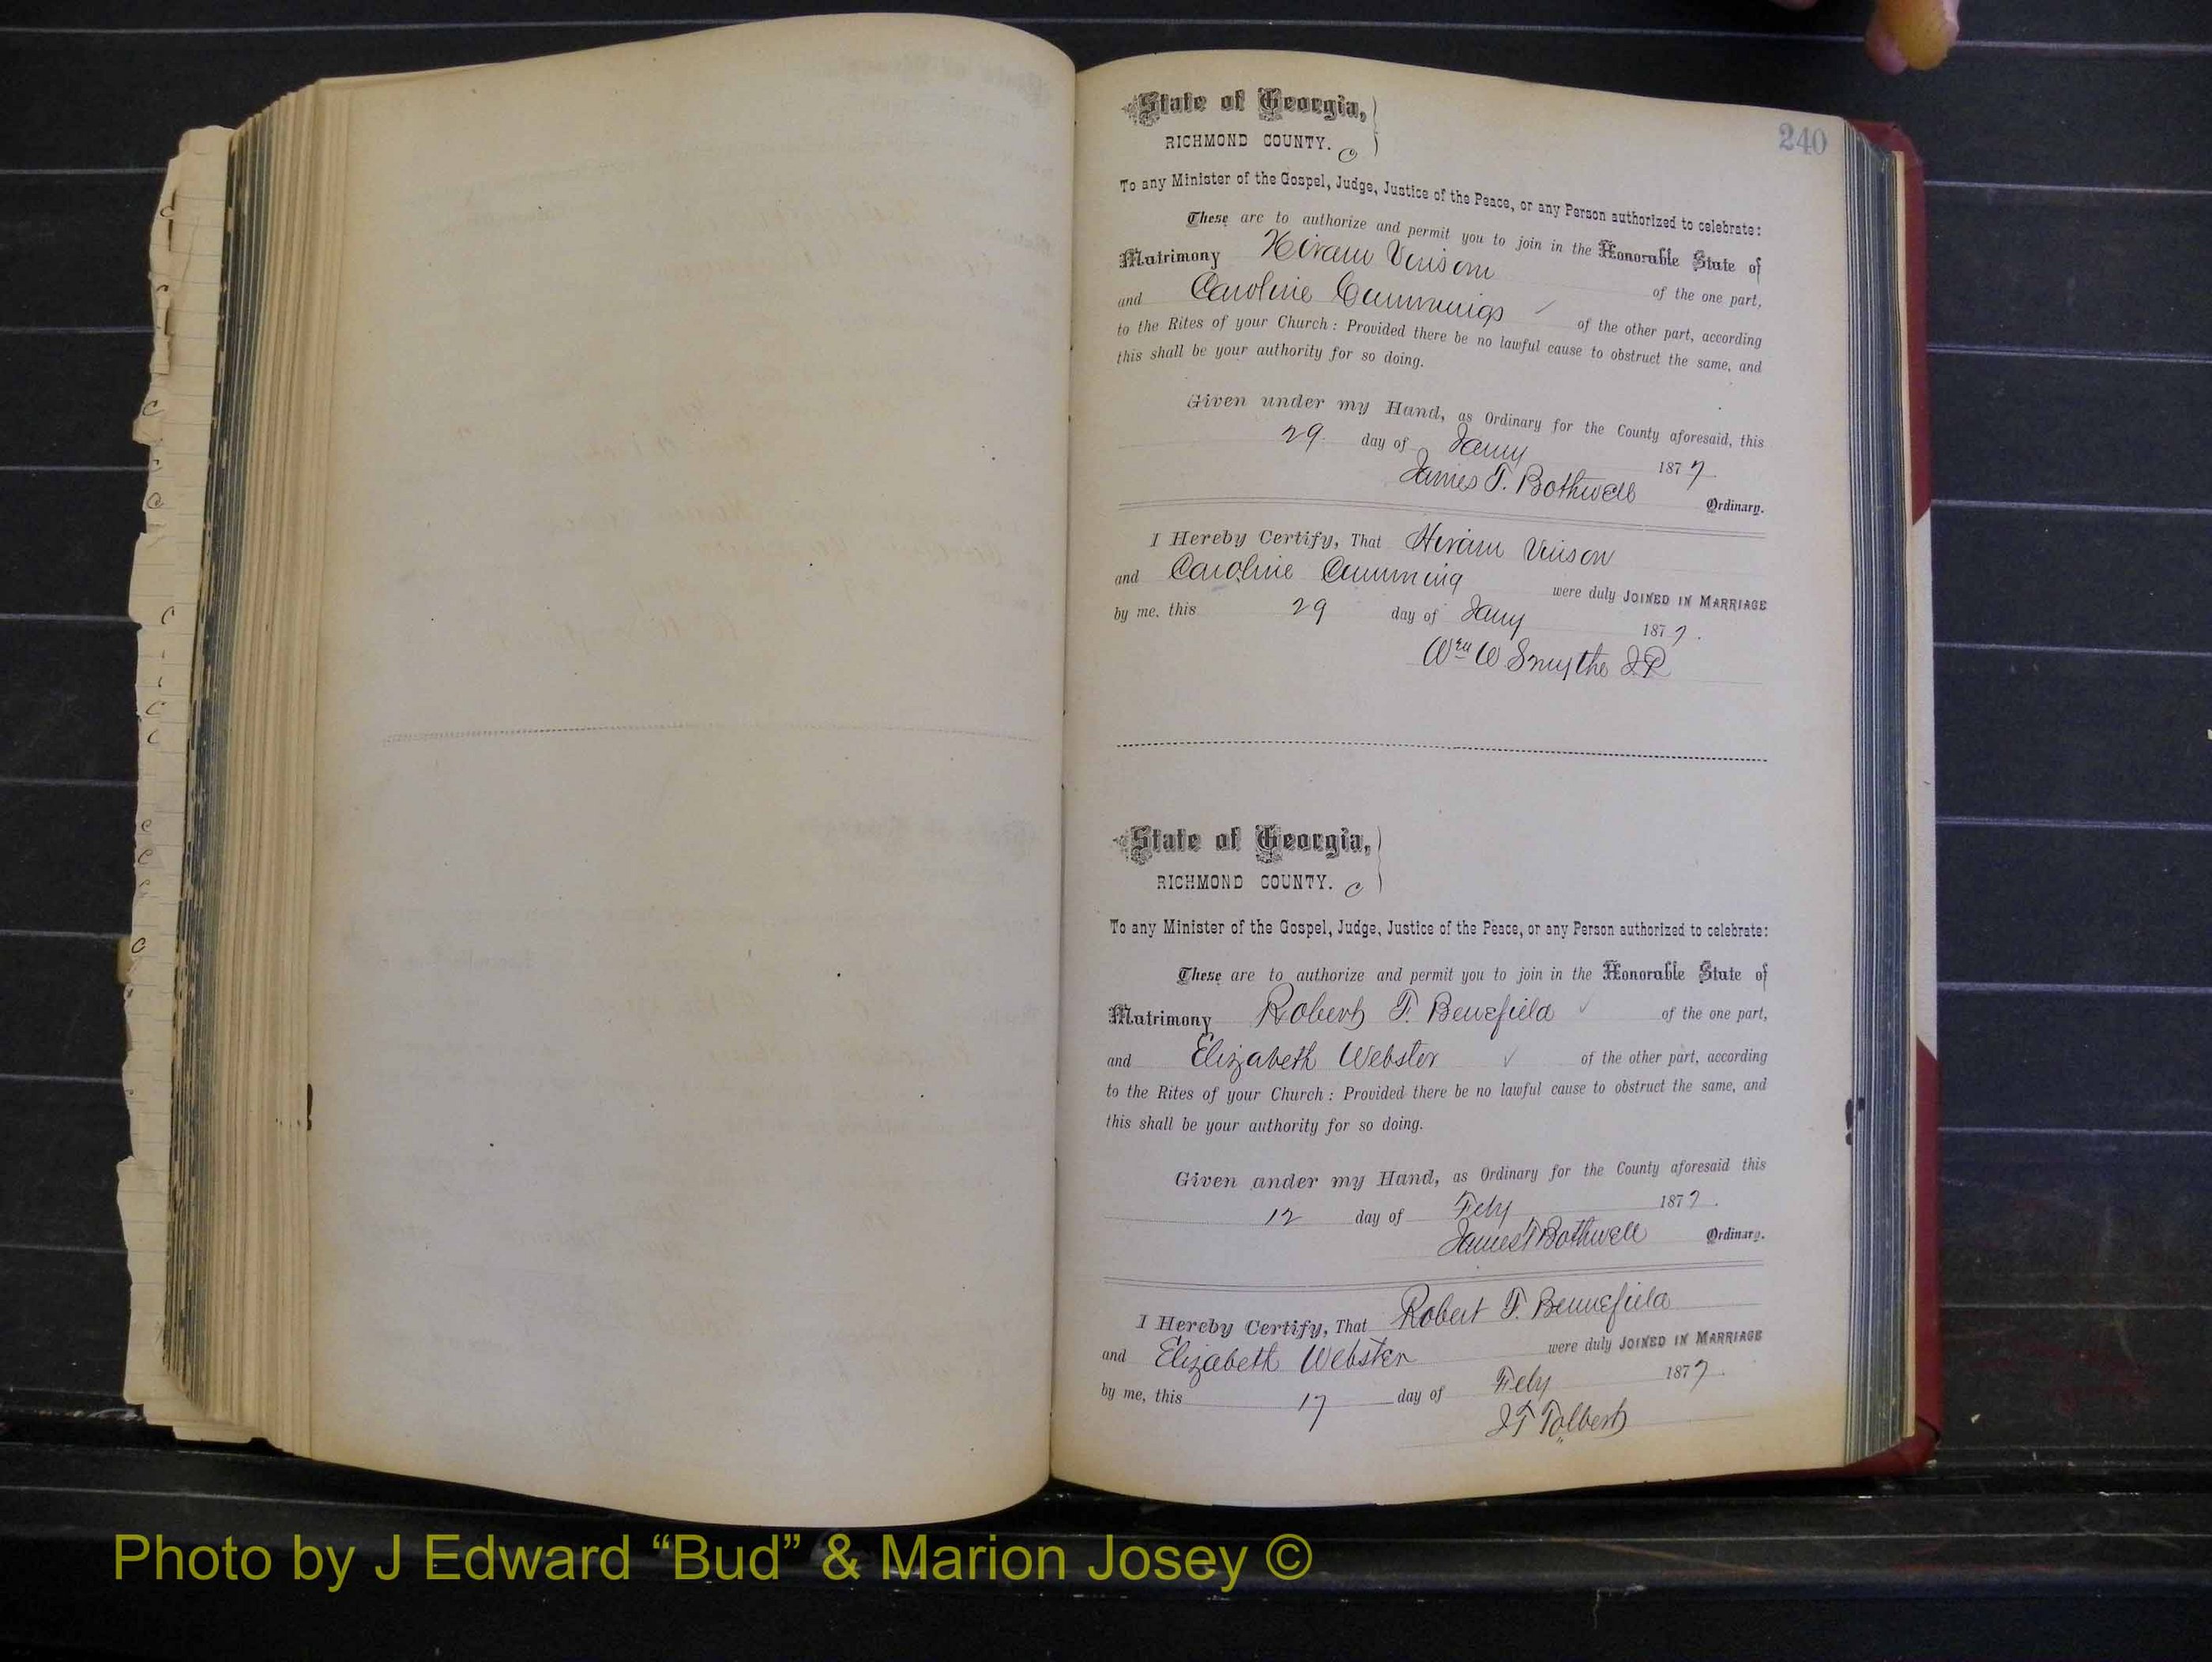 240
State of Georgia,
RICHMOND COUNTY. C
To any Minister of the Gospel, Judge, Justice of the Peace, or any Person authorized to celebrate:
These are to authorize and permit you to join in the Honorable State of
Matrimony Hiram Vinson of the one part,
and Caroline Cummings of the other part, according
to the Rites of your Church: Provided there be no lawful cause to obstruct the same, and
this shall be your authority for so doing.
Given under my Hand, as Ordinary for the County aforesaid, this
29 day of Jany 1877
James T. Bothwell Ordinary.
I Hereby Certify, That Hiram Vinson
and Caroline Cumming were duly JOINED IN MARRIAGE
by me, this 29 day of Jany 1877.
Wm W Smythe J.P.
State of Georgia,
RICHMOND COUNTY. C
To any Minister of the Gospel, Judge, Justice of the Peace, or any Person authorized to celebrate:
These are to authorize and permit you to join in the Honorable State of
Matrimony Robert F. Benefield ✓ of the one part,
and Elizabeth Webster ✓ of the other part, according
to the Rites of your Church: Provided there be no lawful cause to obstruct the same, and
this shall be your authority for so doing.
Given under my Hand, as Ordinary for the County aforesaid this
12 day of Feby 1877.
James T Bothwell Ordinary.
I Hereby Certify, That Robert F. Bennefield
and Elizabeth Webster were duly JOINED IN MARRIAGE
by me, this 17 day of Feby 1877.
J T Tolbert
Photo by J Edward “Bud” & Marion Josey ©